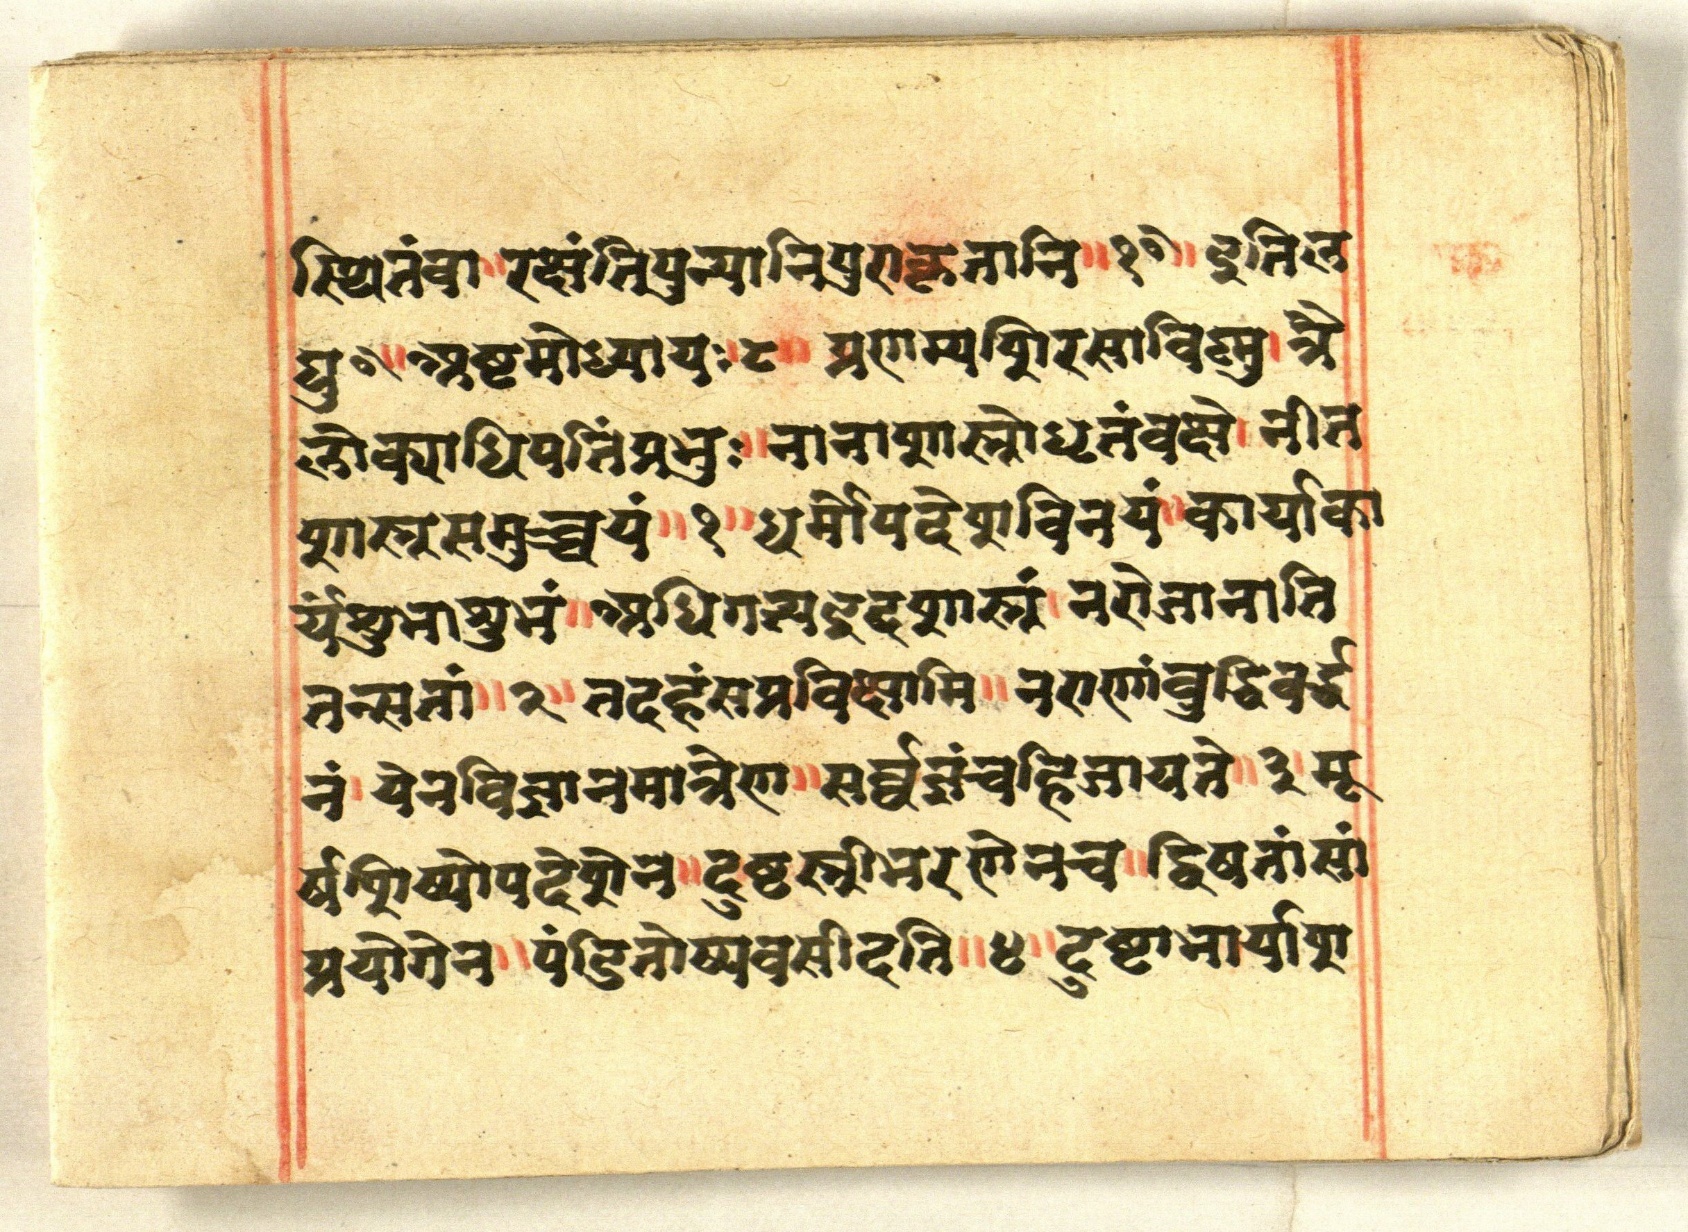 स्थितंवा ॥ रक्षंतिपुन्यानिपुराकृतानि ॥ १९ ॥ इतिल
घु ९ ॥ अष्टमोध्यायः ॥ ८ ॥ प्रणम्यशिरसाविष्मु । त्रै
लोक्याधिपतिंप्रभुः ॥ नानाशास्त्रोधृतंवक्षे । नीत
शास्त्रसमुच्चयं ॥ १ ॥ धर्मोपदेशविनयं ॥ कार्याका
र्यंशुभाशुभं ॥ अधिगत्यइदशास्त्रं । नरोजानाति
तत्सतां ॥ २ ॥ तदहंसप्रविक्षामि ॥ नराणांवुद्धिवर्द्ध
नं । येनविज्ञानमात्रेण ॥ सर्व्वज्ञंचह्विजायते ॥ ३ । मू
र्षशिष्योपदेशेन ॥ दुष्टस्त्रीभरणेनच ॥ द्विषतांसां
प्रयोगेन ॥ पंडितोष्यवसीदति ॥ ४ ॥ दुष्टाभार्याश